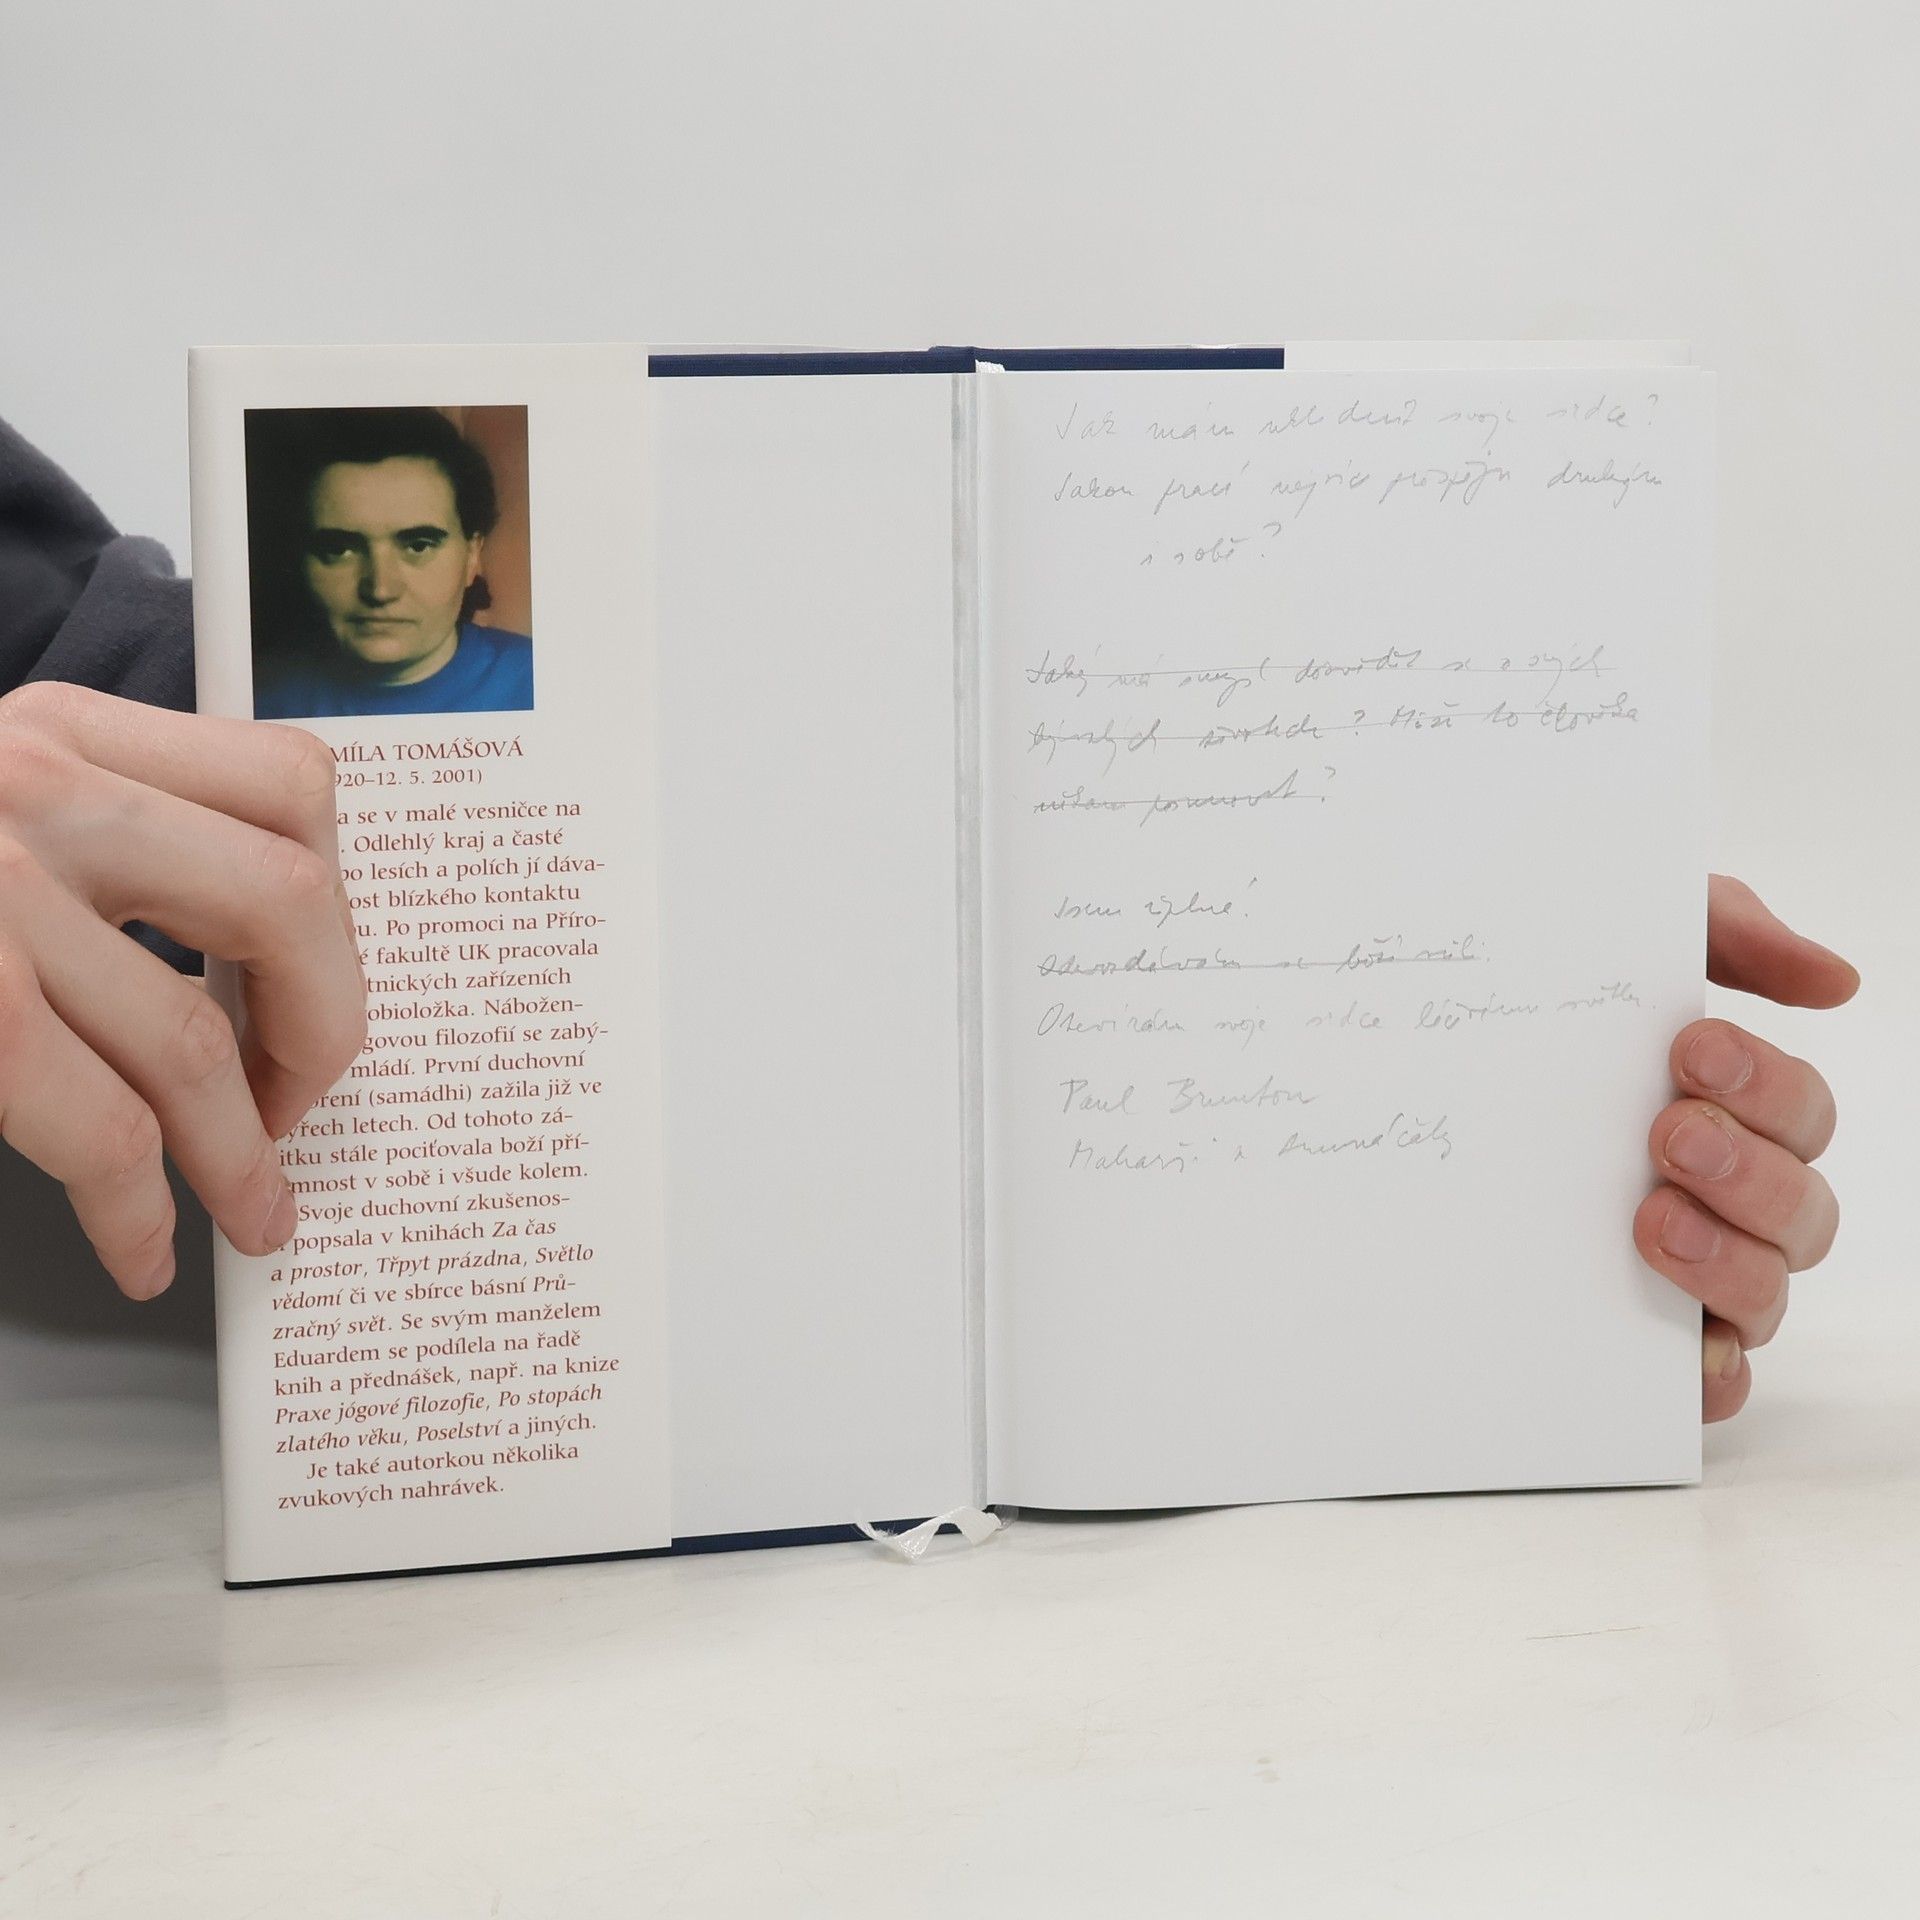 MÍLA TOMÁŠOVÁ
920–12. 5. 2001)
a se v malé vesničce na
. Odlehlý kraj a časté
po lesích a polích jí dáva-
ost blízkého kontaktu
ou. Po promoci na Příro-
é fakultě UK pracovala
tnických zařízeních
obioložka. Nábožen-
govou filozofií se zabý-
mládí. První duchovní
oření (samádhi) zažila již ve
yřech letech. Od tohoto zá-
itku stále pociťovala boží pří-
mnost v sobě i všude kolem.
Svoje duchovní zkušenos-
i popsala v knihách Za čas
a prostor, Třpyt prázdna, Světlo
vědomí či ve sbírce básní Prů-
zračný svět. Se svým manželem
Eduardem se podílela na řadě
knih a přednášek, např. na knize
Praxe jógové filozofie, Po stopách
zlatého věku, Poselství a jiných.
Je také autorkou několika
zvukových nahrávek.
Jak mám svoje srdce?
Jakou prací nejvíc prospěju druhým
i sobě?
Jaký má smysl dozvědět se o svých
bývalých životech? to člověka
někam posunovat?
Jsem úplné!
Odevzdávám se boží vůli.
Otevírám svoje srdce léčivému světlu.
Paul Brunton
Maharši z Arunáčaly